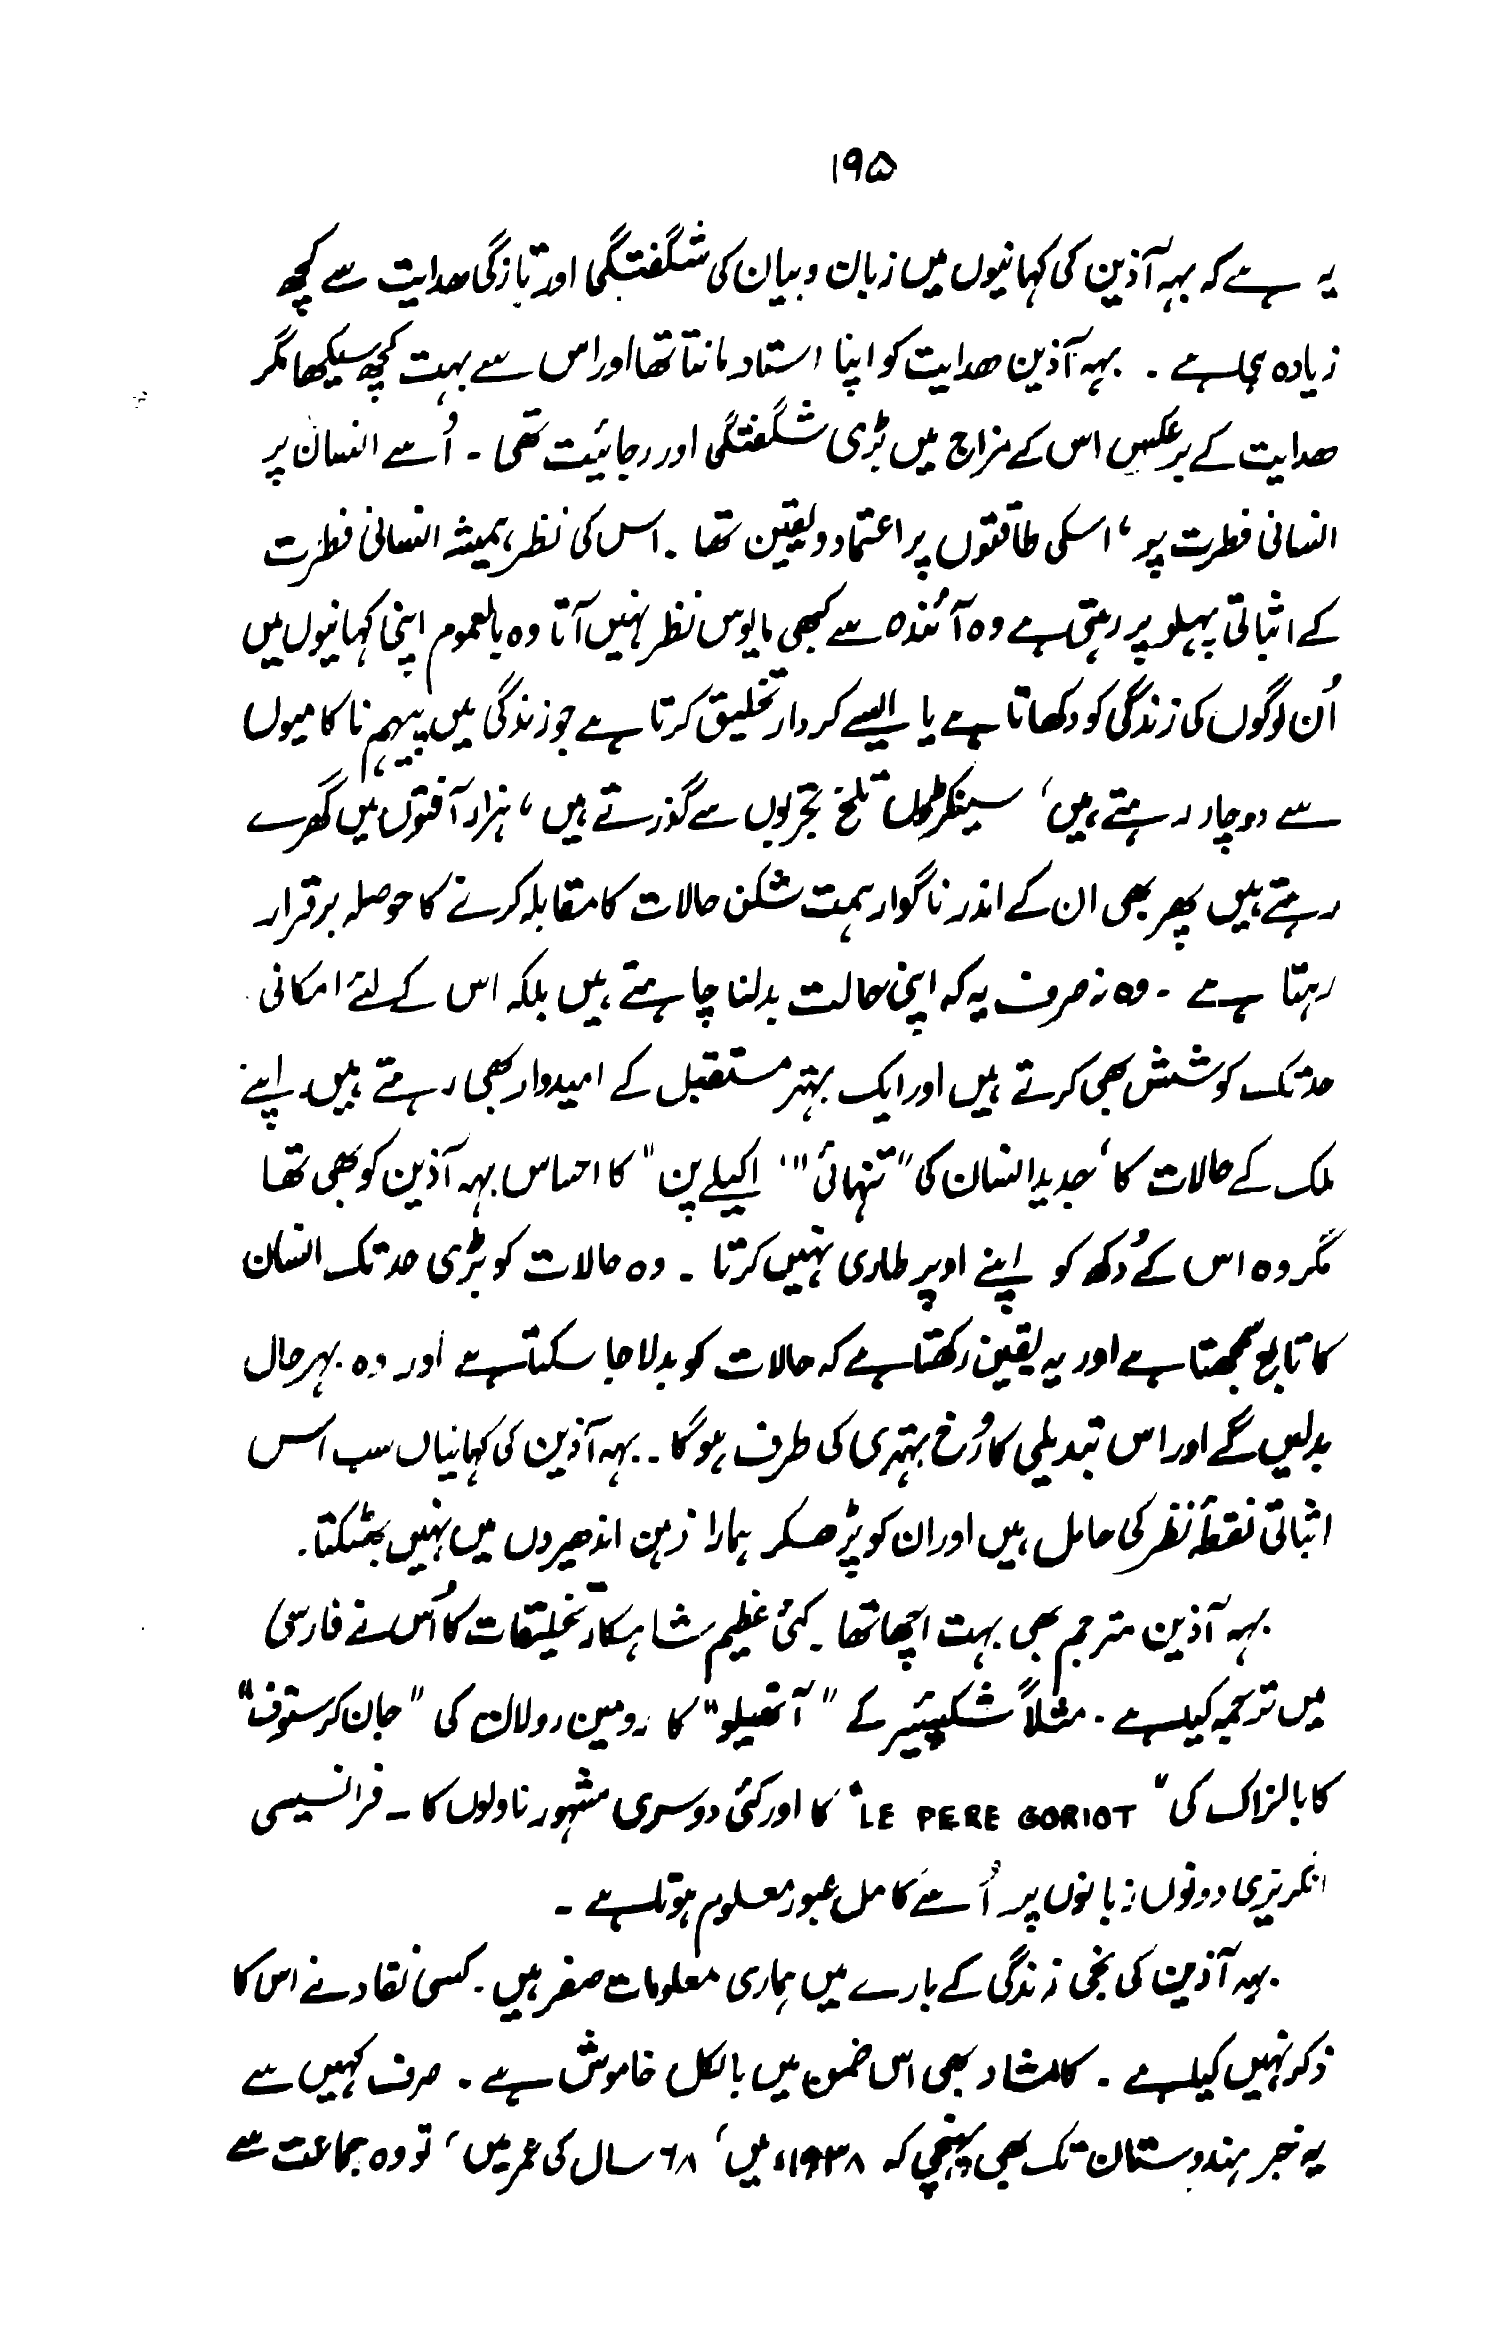 ۱۹۵
یہ ہے کہ بہہ آذین کی کہانیوں میں زبان و بیان کی شگفتگی اور تازگی ھدایت سے کچھ
زیادہ ہی ہے ۔ بہہ آذین ھدایت کو اپنا استاد مانتا تھا اور اس سے بہت کچھ سیکھا مگر
ھدایت کے برعکس اس کے مزاج میں بڑی شگفتگی اور رجائیت تھی ۔ اُسے انسان پر
انسانی فطرت پر ، اسکی طاقتوں پر اعتماد و یقین تھا ۔ اس کی نظر ہمیشہ انسانی فطرت
کے اثباتی پہلو پر رہتی ہے وہ آئندہ سے کبھی مایوس نظر نہیں آتا وہ بالعموم اپنی کہانیوں میں
اُن لوگوں کی زندگی کو دکھاتا ہے یا ایسے کردار تخلیق کرتا ہے جو زندگی میں پیہم ناکامیوں
سے دوچار رہتے ہیں ، سینکڑوں تلخ تجربوں سے گذرتے ہیں ، ہزار آفتوں میں گھرے
رہتے ہیں پھر بھی ان کے اندر ناگوار ہمت شکن حالات کا مقابلہ کرنے کا حوصلہ برقرار
رہتا ہے ۔ وہ نہ صرف یہ کہ اپنی حالت بدلنا چاہتے ہیں بلکہ اس کے لئے امکانی
حد تک کوشش بھی کرتے ہیں اور ایک بہتر مستقبل کے امیدوار بھی رہتے ہیں ۔ اپنے
ملک کے حالات کا ، جدید انسان کی "تنہائی" ، "اکیلے پن" کا احساس بہہ آذین کو بھی تھا
مگر وہ اس کے دُکھ کو اپنے اوپر طاری نہیں کرتا ۔ وہ حالات کو بڑی حد تک انسان
کا تابع سمجھتا ہے اور یہ یقین رکھتا ہے کہ حالات کو بدلا جا سکتا ہے اور وہ بہرحال
بدلیں گے اور اس تبدیلی کا رُخ بہتری کی طرف ہوگا ۔ بہہ آذین کی کہانیاں سب اس
اثباتی نقطۂ نظر کی حامل ہیں اور ان کو پڑھکر ہمارا ذہن اندھیروں میں نہیں بھٹکتا ۔
بہہ آذین مترجم بھی بہت اچھا تھا ۔ کئی عظیم شاہکار تخلیقات کا اُس نے فارسی
میں ترجمہ کیا ہے ۔ مثلاً شکسپئیر کے "آتھیلو" کا رومین رولان کی "جان کرستوف"
کا بالزاک کی "LE PERE GORIOT" کا اور کئی دوسری مشہور ناولوں کا ۔ فرانسیسی
انگریزی دونوں زبانوں پر اُسے کامل عبور معلوم ہوتا ہے ۔
بہہ آذین کی نجی زندگی کے بارے میں ہماری معلومات صفر ہیں ۔ کسی نقاد نے اس کا
ذکر نہیں کیا ہے ۔ کامشاد بھی اس ضمن میں بالکل خاموش ہے ۔ صرف کہیں سے
یہ خبر ہندوستان تک بھی پہنچی کہ ۱۹۳۸ء میں ، ۶۸ سال کی عمر میں ، تو وہ جماعت سے